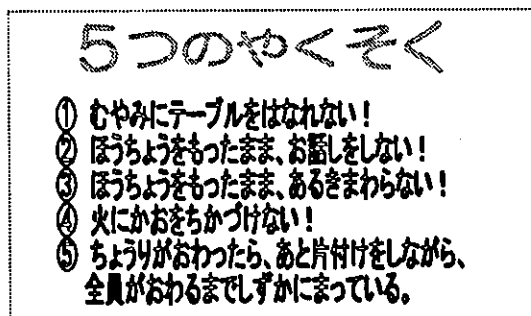 ５つのやくそく
① むやみにテーブルをはなれない！
② ほうちょうをもったまま、お話しをしない！
③ ほうちょうをもったまま、あるきまわらない！
④ 火にかおをちかづけない！
⑤ ちょうりがおわったら、あと片付けをしながら、
全員がおわるまでしずかにまっている。